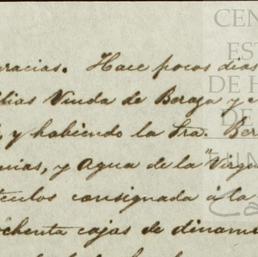 gracias. Hace pocos dias
Viuda de Beraja y
y habiendo la Sra. Ber
y Agua de la "Virge
consignada á la
ochenta cajas de dinam
CEN
ES
DE H
DE